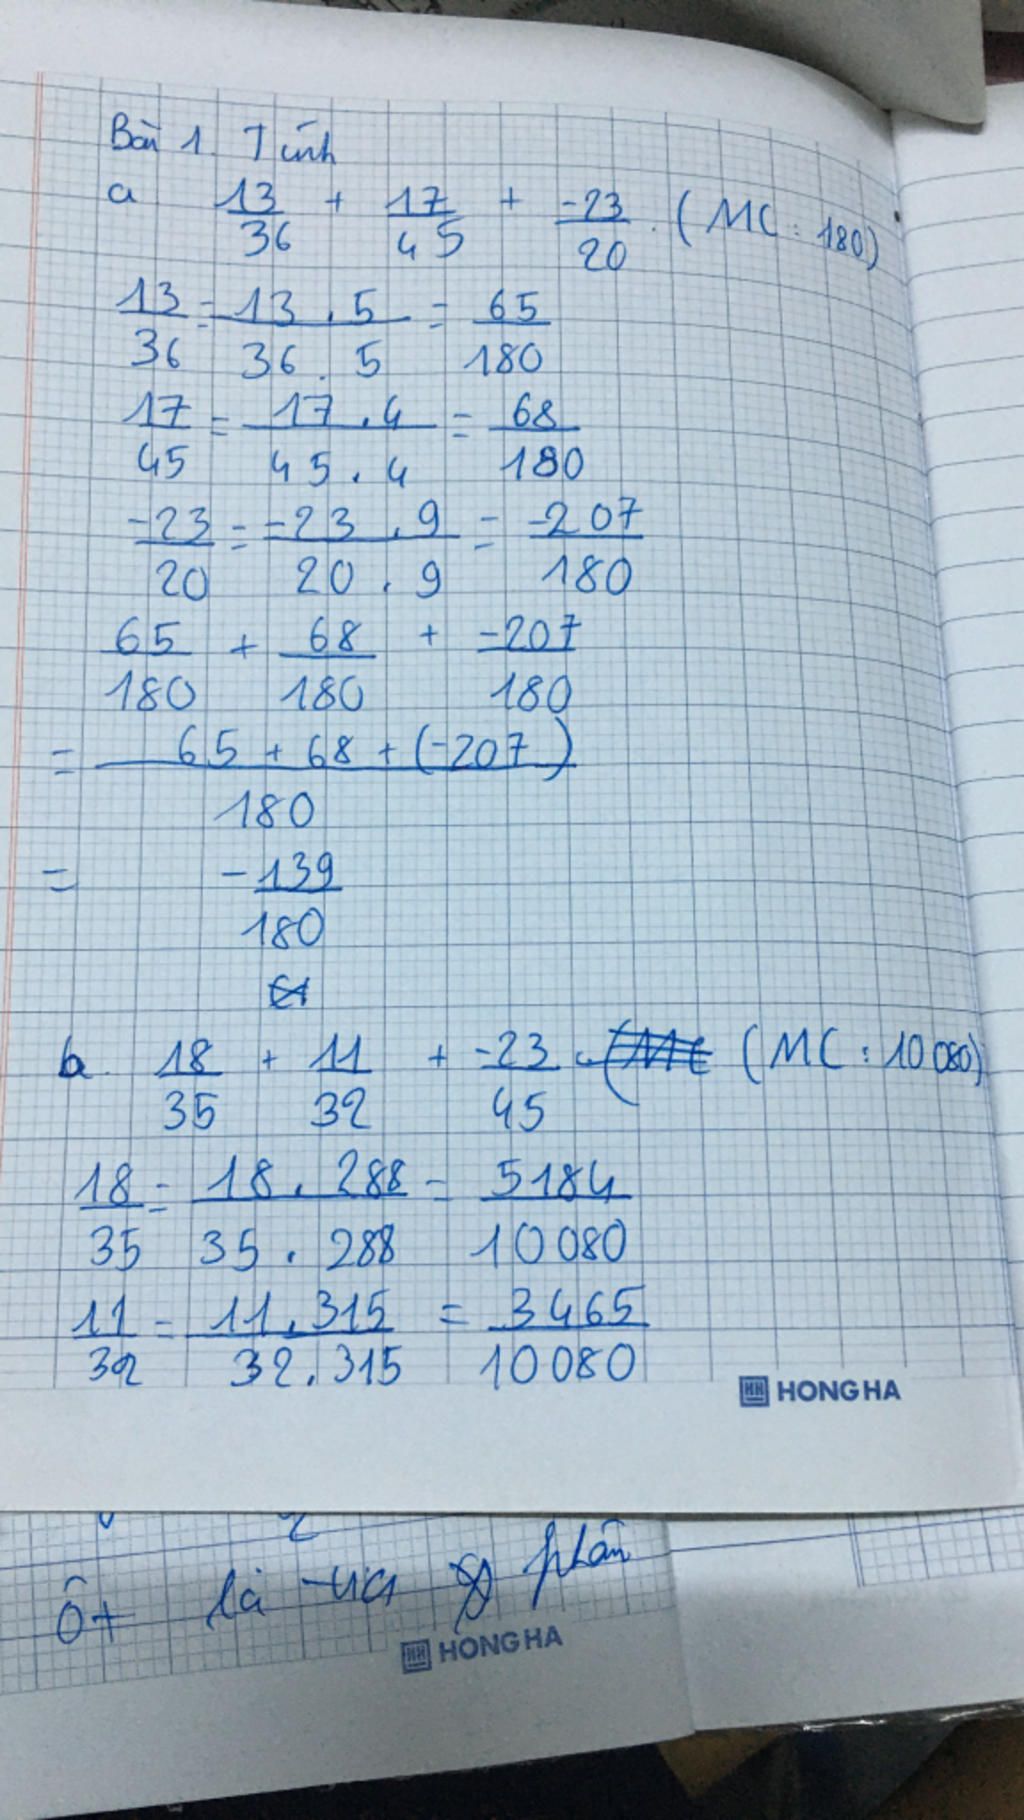 Bài 1. Tính
a 13/36 + 17/45 + -23/20 . (MC : 180)
13/36 = 13 . 5/36 . 5 = 65/180
17/45 = 17 . 4/45 . 4 = 68/180
-23/20 = -23 . 9/20 . 9 = -207/180
65/180 + 68/180 + -207/180
= 65 + 68 + (-207)/180
= -139/180
b. 18/35 + 11/32 + -23/45 (MC : 10 080)
18/35 = 18 . 288/35 . 288 = 5184/10 080
11/32 = 11 . 315/32 . 315 = 3465/10 080
HONG HA
là phân
HONG HA